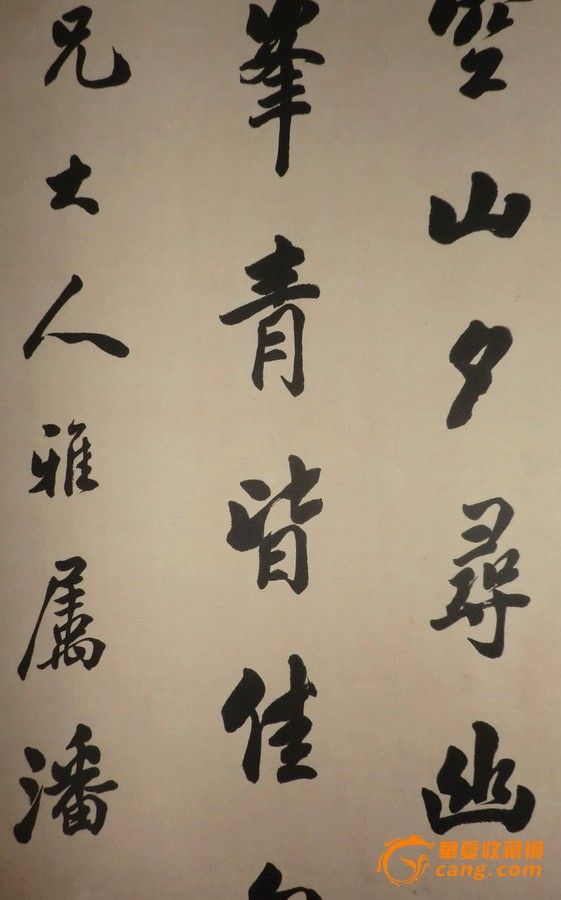 山夕尋幽
峯青皆佳
兄大人雅属潘
華夏收藏網
cang.com